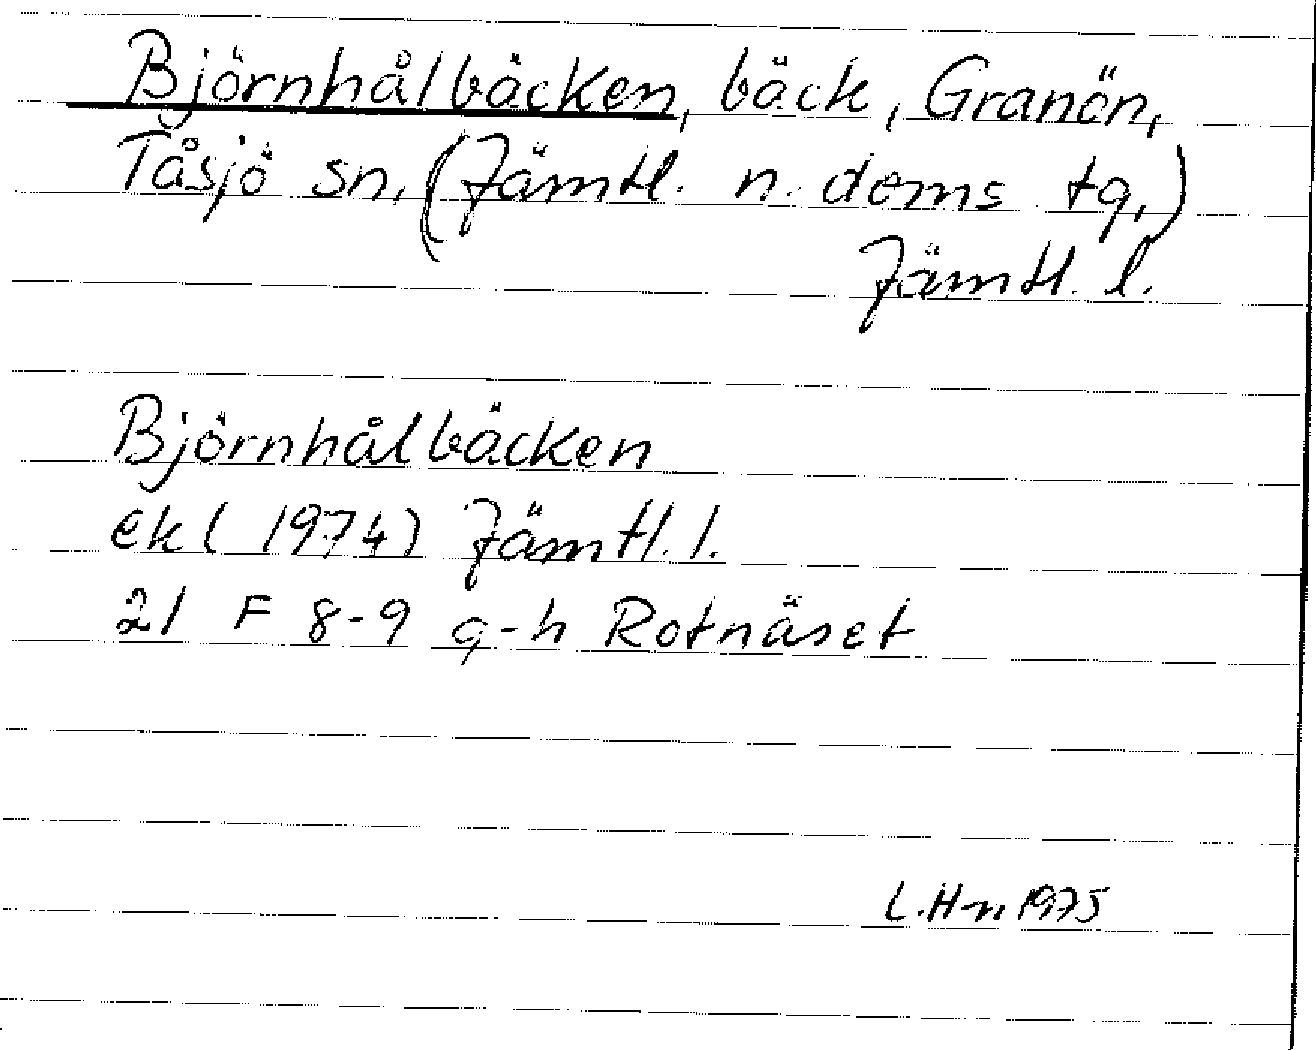 Björnhålbäcken, bäck, Granön,
Tåsjö sn, (Jämtl. n. doms tg,)
Jämtl. l.
Björnhålbäcken
ek ( 1974) Jämtl. l.
21 F 8-9 g-h Rotnäset
L.Hn 1975